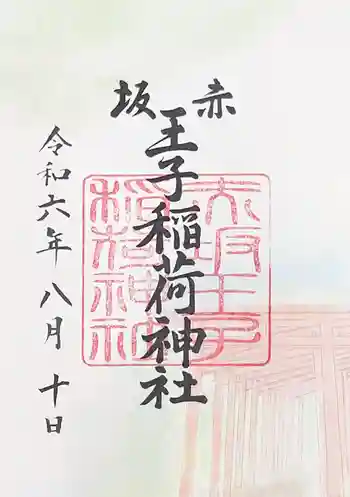 赤坂
王子稲荷神社
令和六年八月十日
赤坂王子
稲荷神社